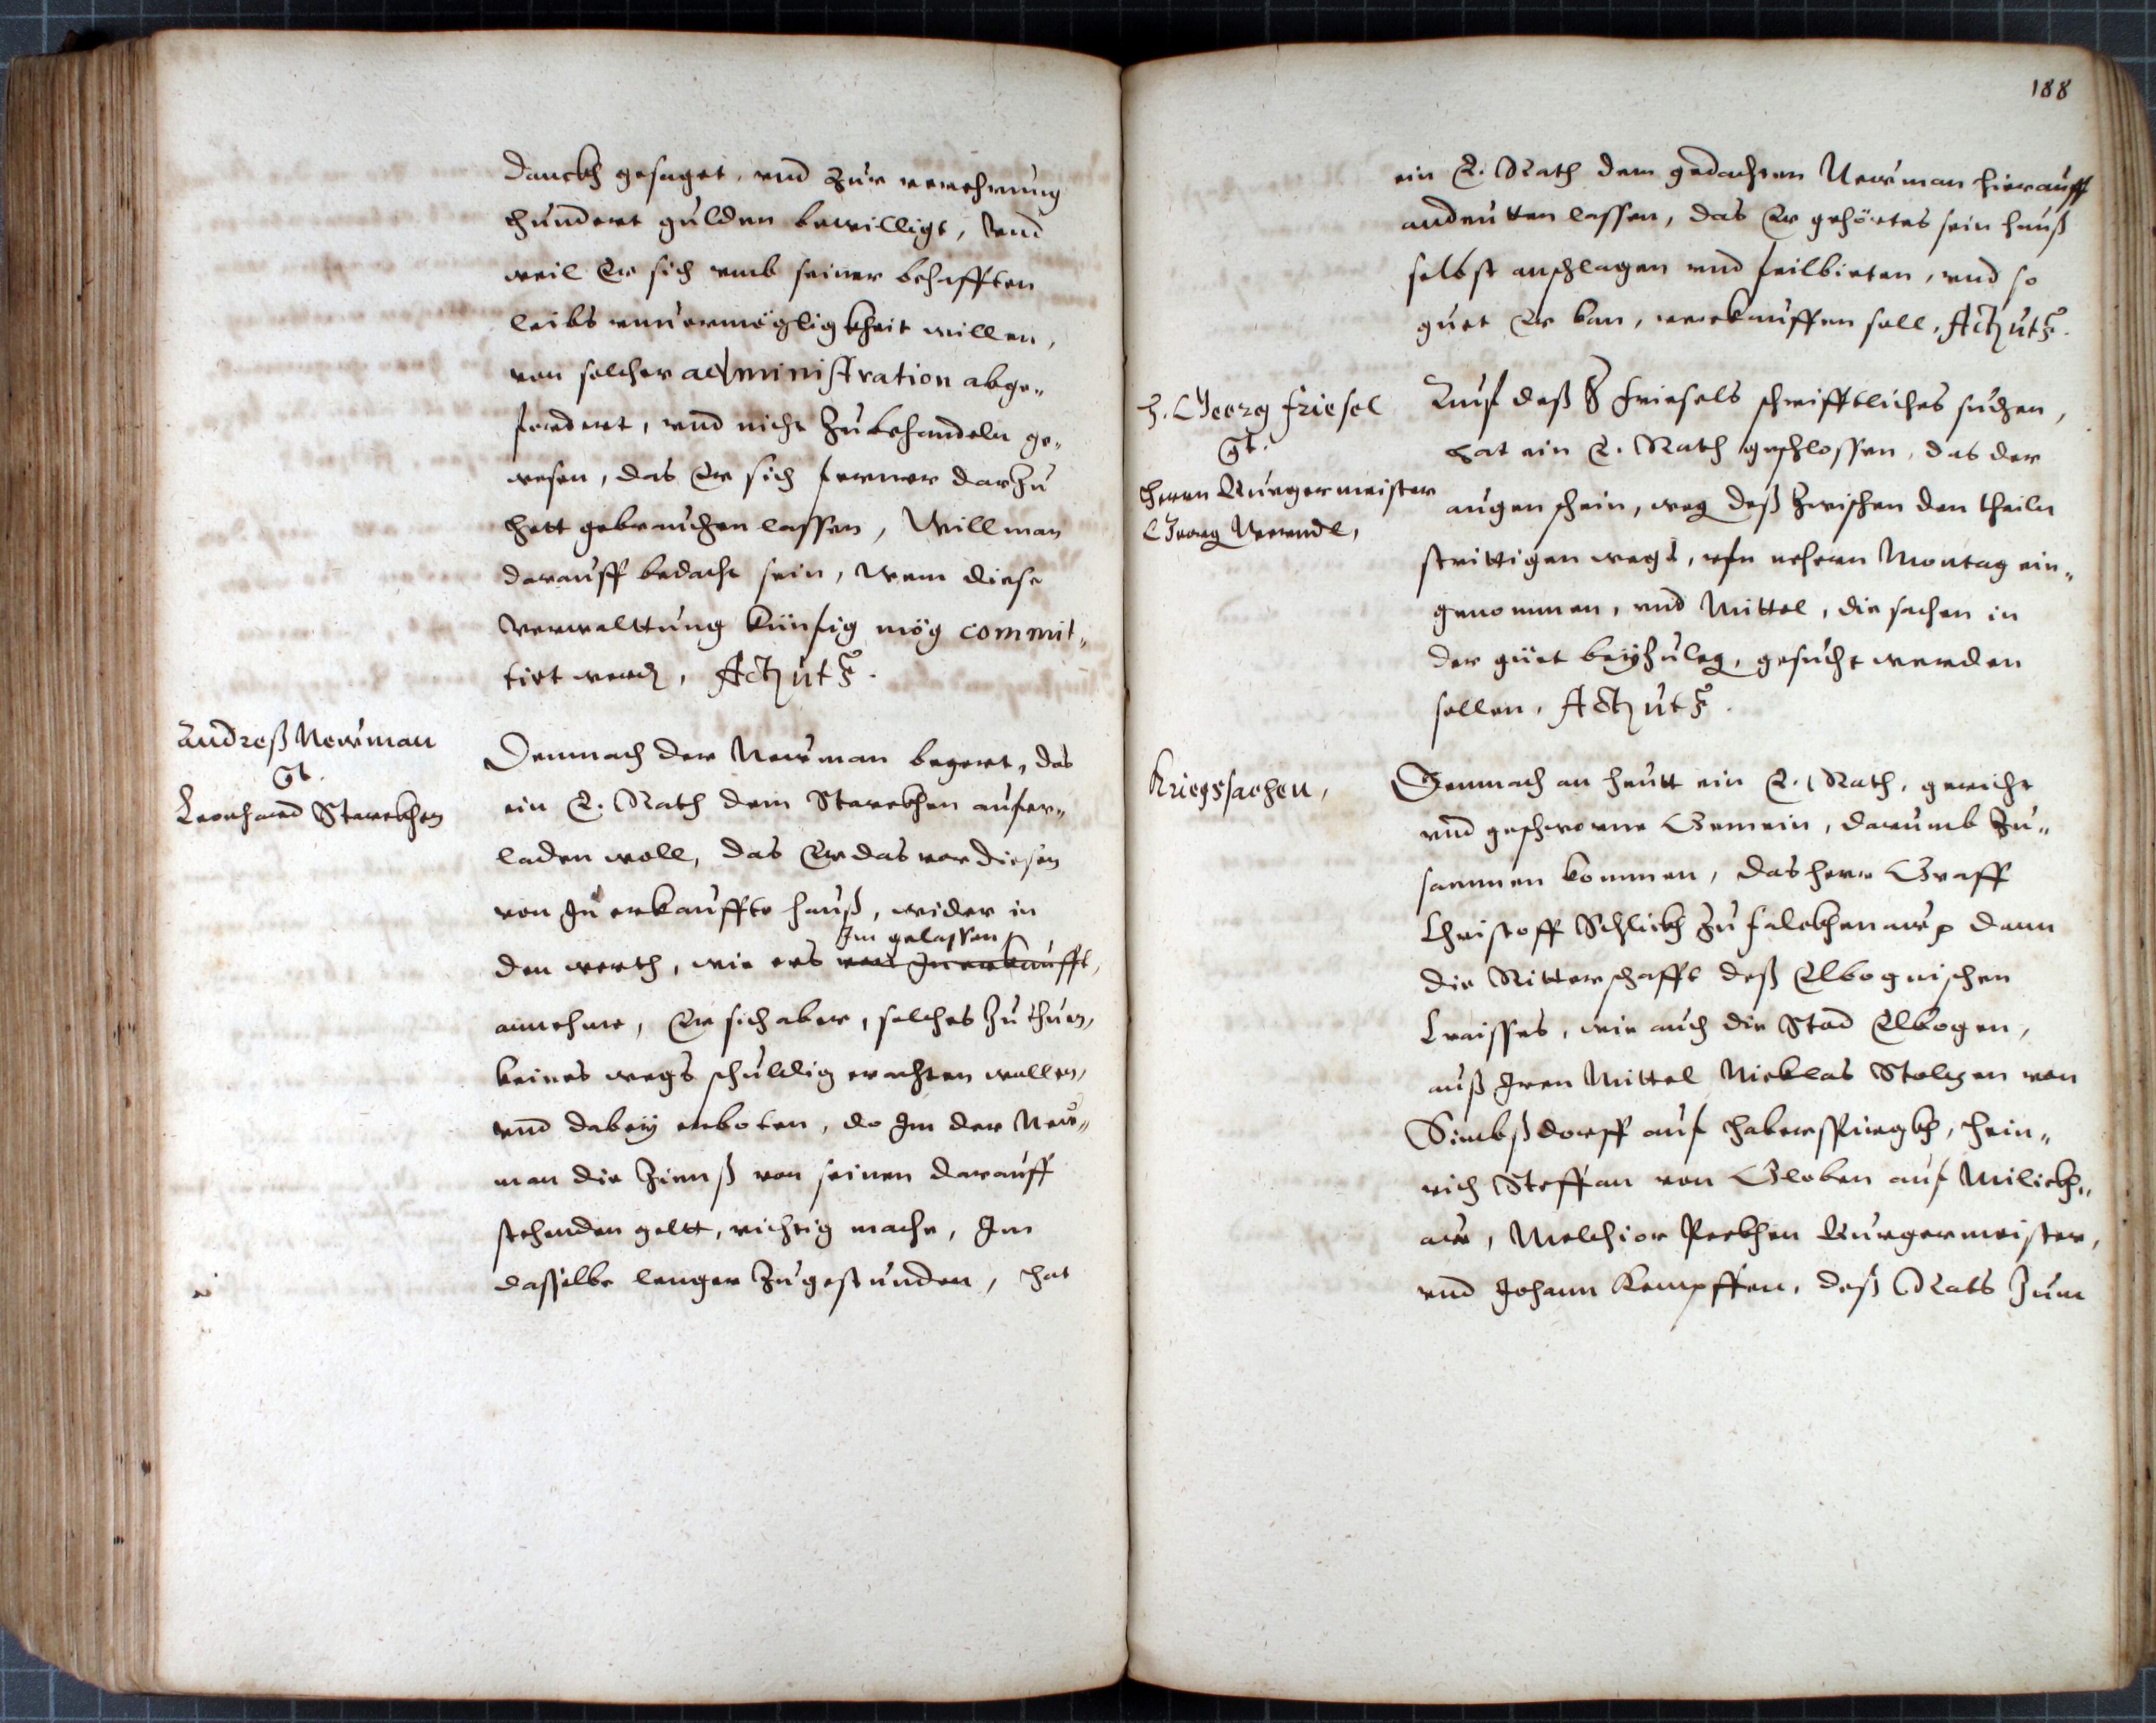 danckh gesaget, vnd zur verehrung
hundert gulden bewilligt, Vnd
weil Er sich vmb seiner behafften
leibs vnuermögligkheit willen,
von solcher administration abge„
fordert, vnd nicht zubehandeln ge„
wesen, das Er sich ferner darzu
hett gebrauchen lassen, Will man
darauff bedacht sein, Wem diese
Verwalttung künfig mög commit„
tirt werd,
Andreß Newman
Leonhard Starckhen
Demnach der Newman begert, das
ein E. Rath dem Starckhen aufer„
laden woll, das Er das vor diesen
von Im erkauffte hauß, wider in
Im gelassen
den werth, wie ers von Im erkaufft,
annehme, Er sich aber, solches zu thuen,
keines wegs schuldig erachten wollen,
vnd dabey erboten, do Im der New„
man die Zinnß von seinen darauff
stehenden geltt, richtig mache, Im
dasselbe lenger zugestunden, hat
188
ein E. Rath dem gedachten Newman hierauff
andeutten lassen, das Er gehörtes sein hauß
selbst anschlagen vnd feilbieten, vnd so
guet Er kan, verkauffen soll,
H. Georg Friesel
Herrn Burgermeister
Georg Werndl,
Auf deß H Friesels schrifftliches suchen,
hat ein E. Rath geschlossen, das der
augenschein, weg deß zwischen den theiln
strittigen wegs, vfn nehern Montag ein„
genommen, vnd Mittel, die sachen in
der güet beyzuleg, gesucht werden
sollen,
Kriegssachen,
Demnach an heutt ein E. Rath, gericht
vnd geschworne Gemein, darumb zu„
sammen kommen, das herr Graff
Christoff Schlickh zu Falckhenaw dann
die Ritterschafft deß Elbognischen
Craisses, wie auch die Stad Elbogen,
auß Iren Mittel Nicklas Stolzen von
Simbßdorff auf Haberspirgkh, Hein„
rich Steffan von Globen auf Milickh„
aw, Melchior Peckhen Burgermeister,
vnd Johann Kempffen, deß Rats zum